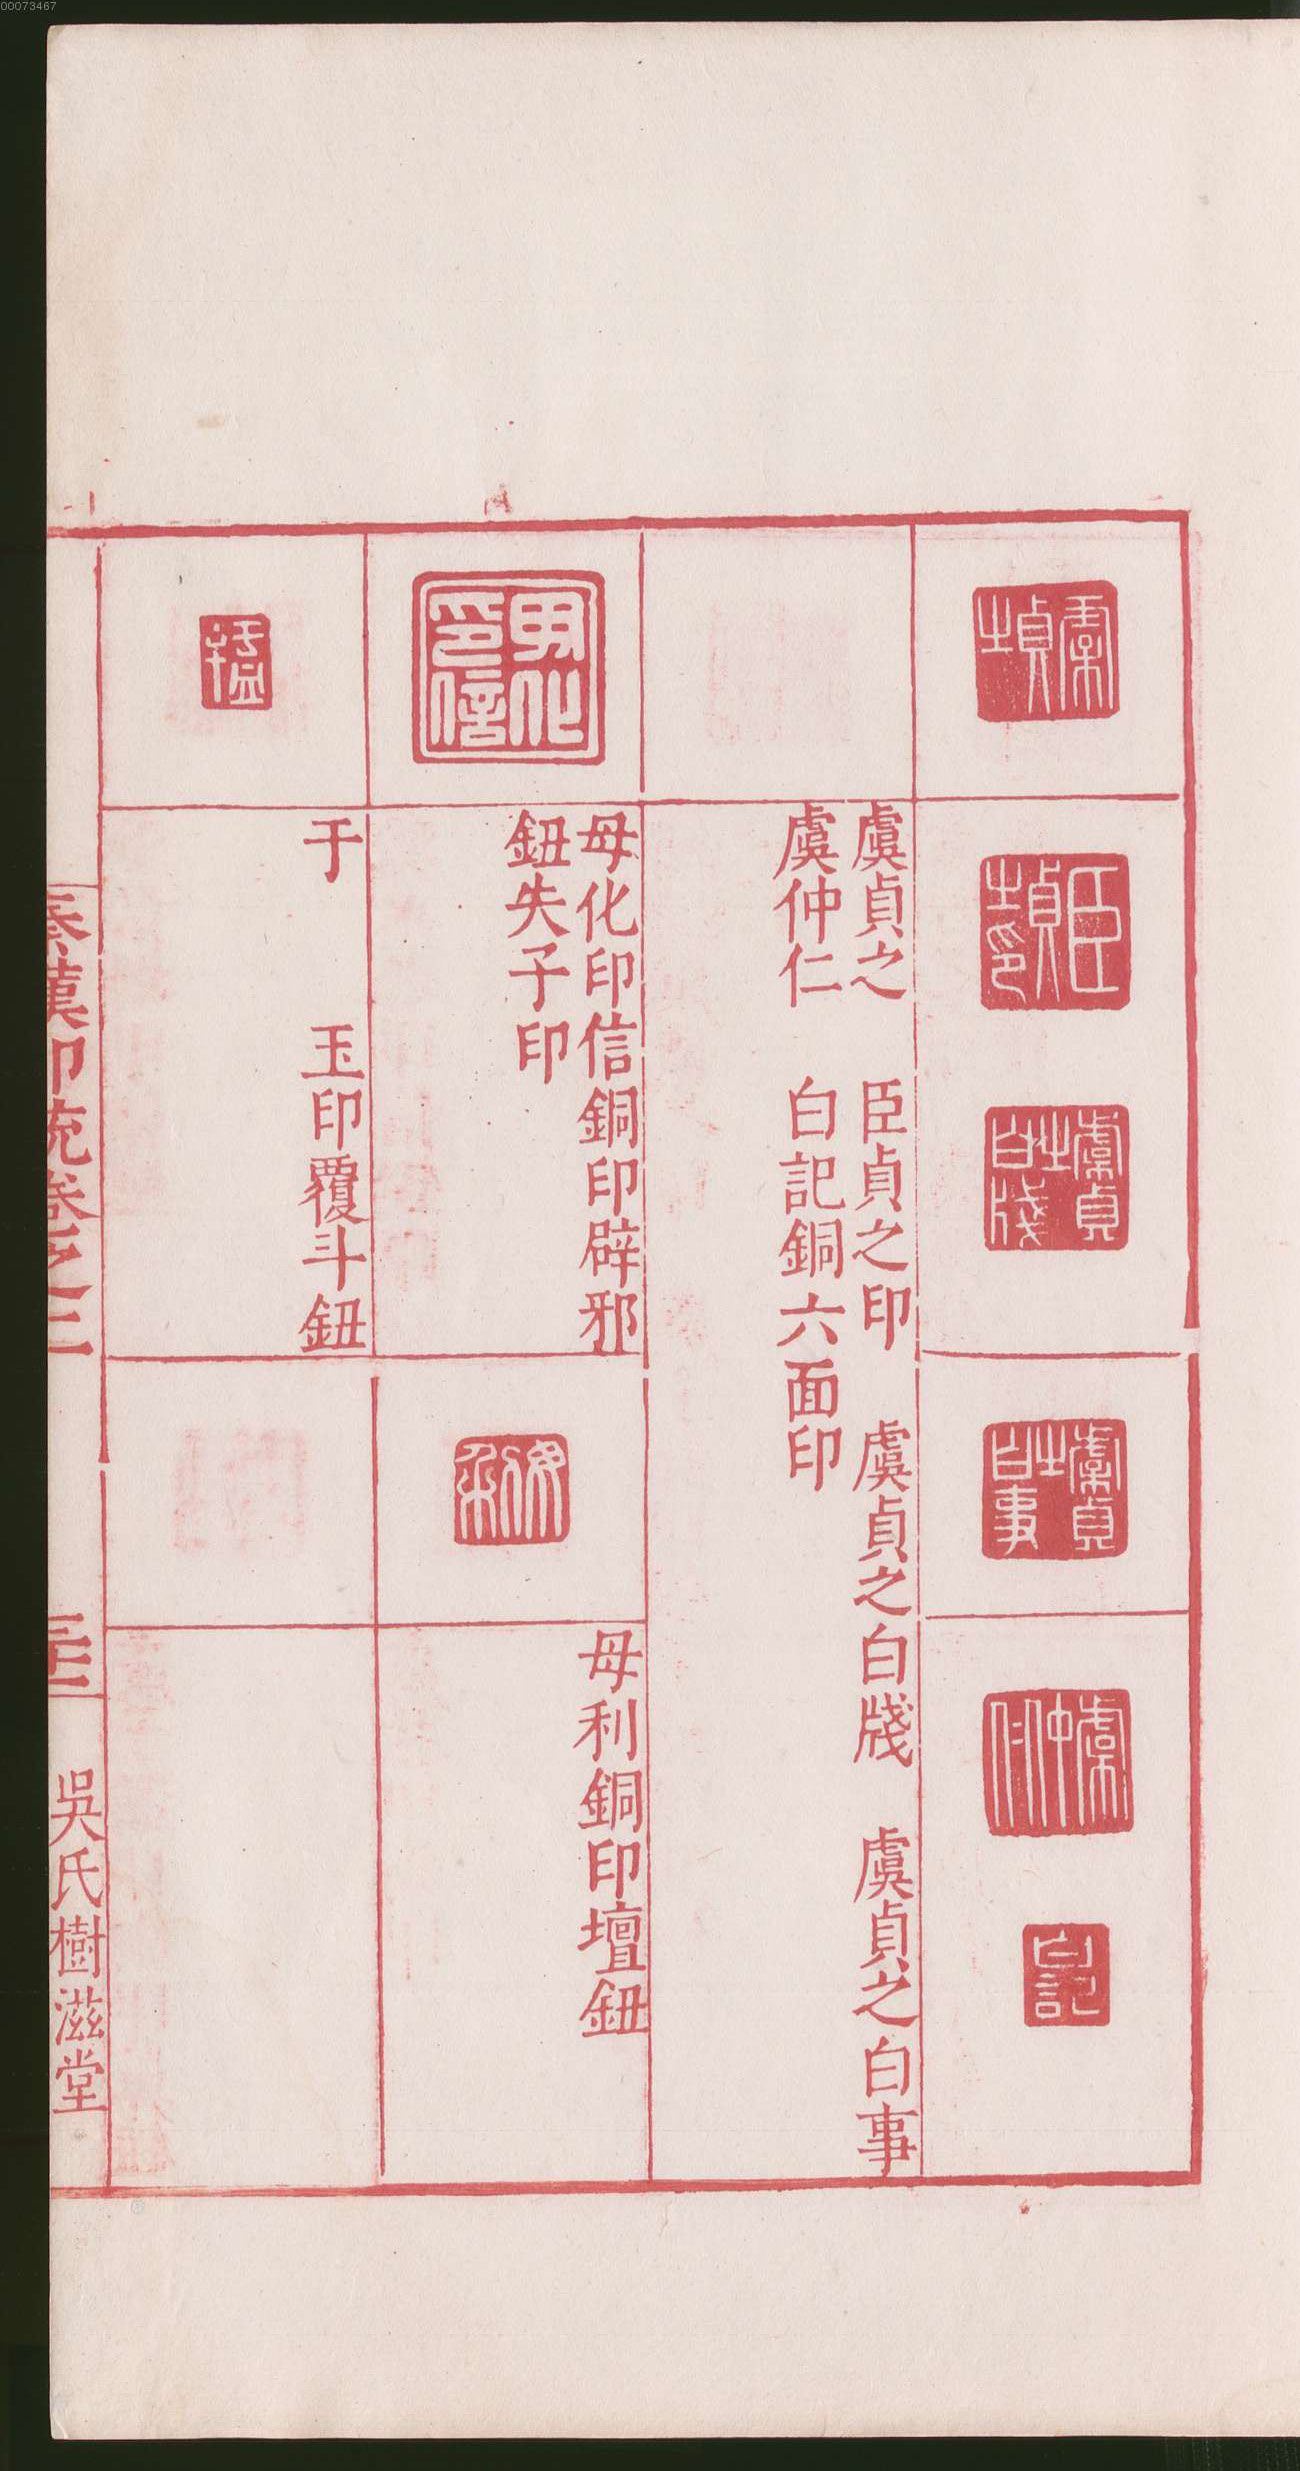 00073467
虞貞之　臣貞之印　虞貞之白牋　虞貞之白事
虞仲仁　白記銅六面印
母化印信銅印辟邪
鈕失子印
母利銅印壇鈕
于　　玉印覆斗鈕
秦漢印統卷之二
吳氏樹滋堂